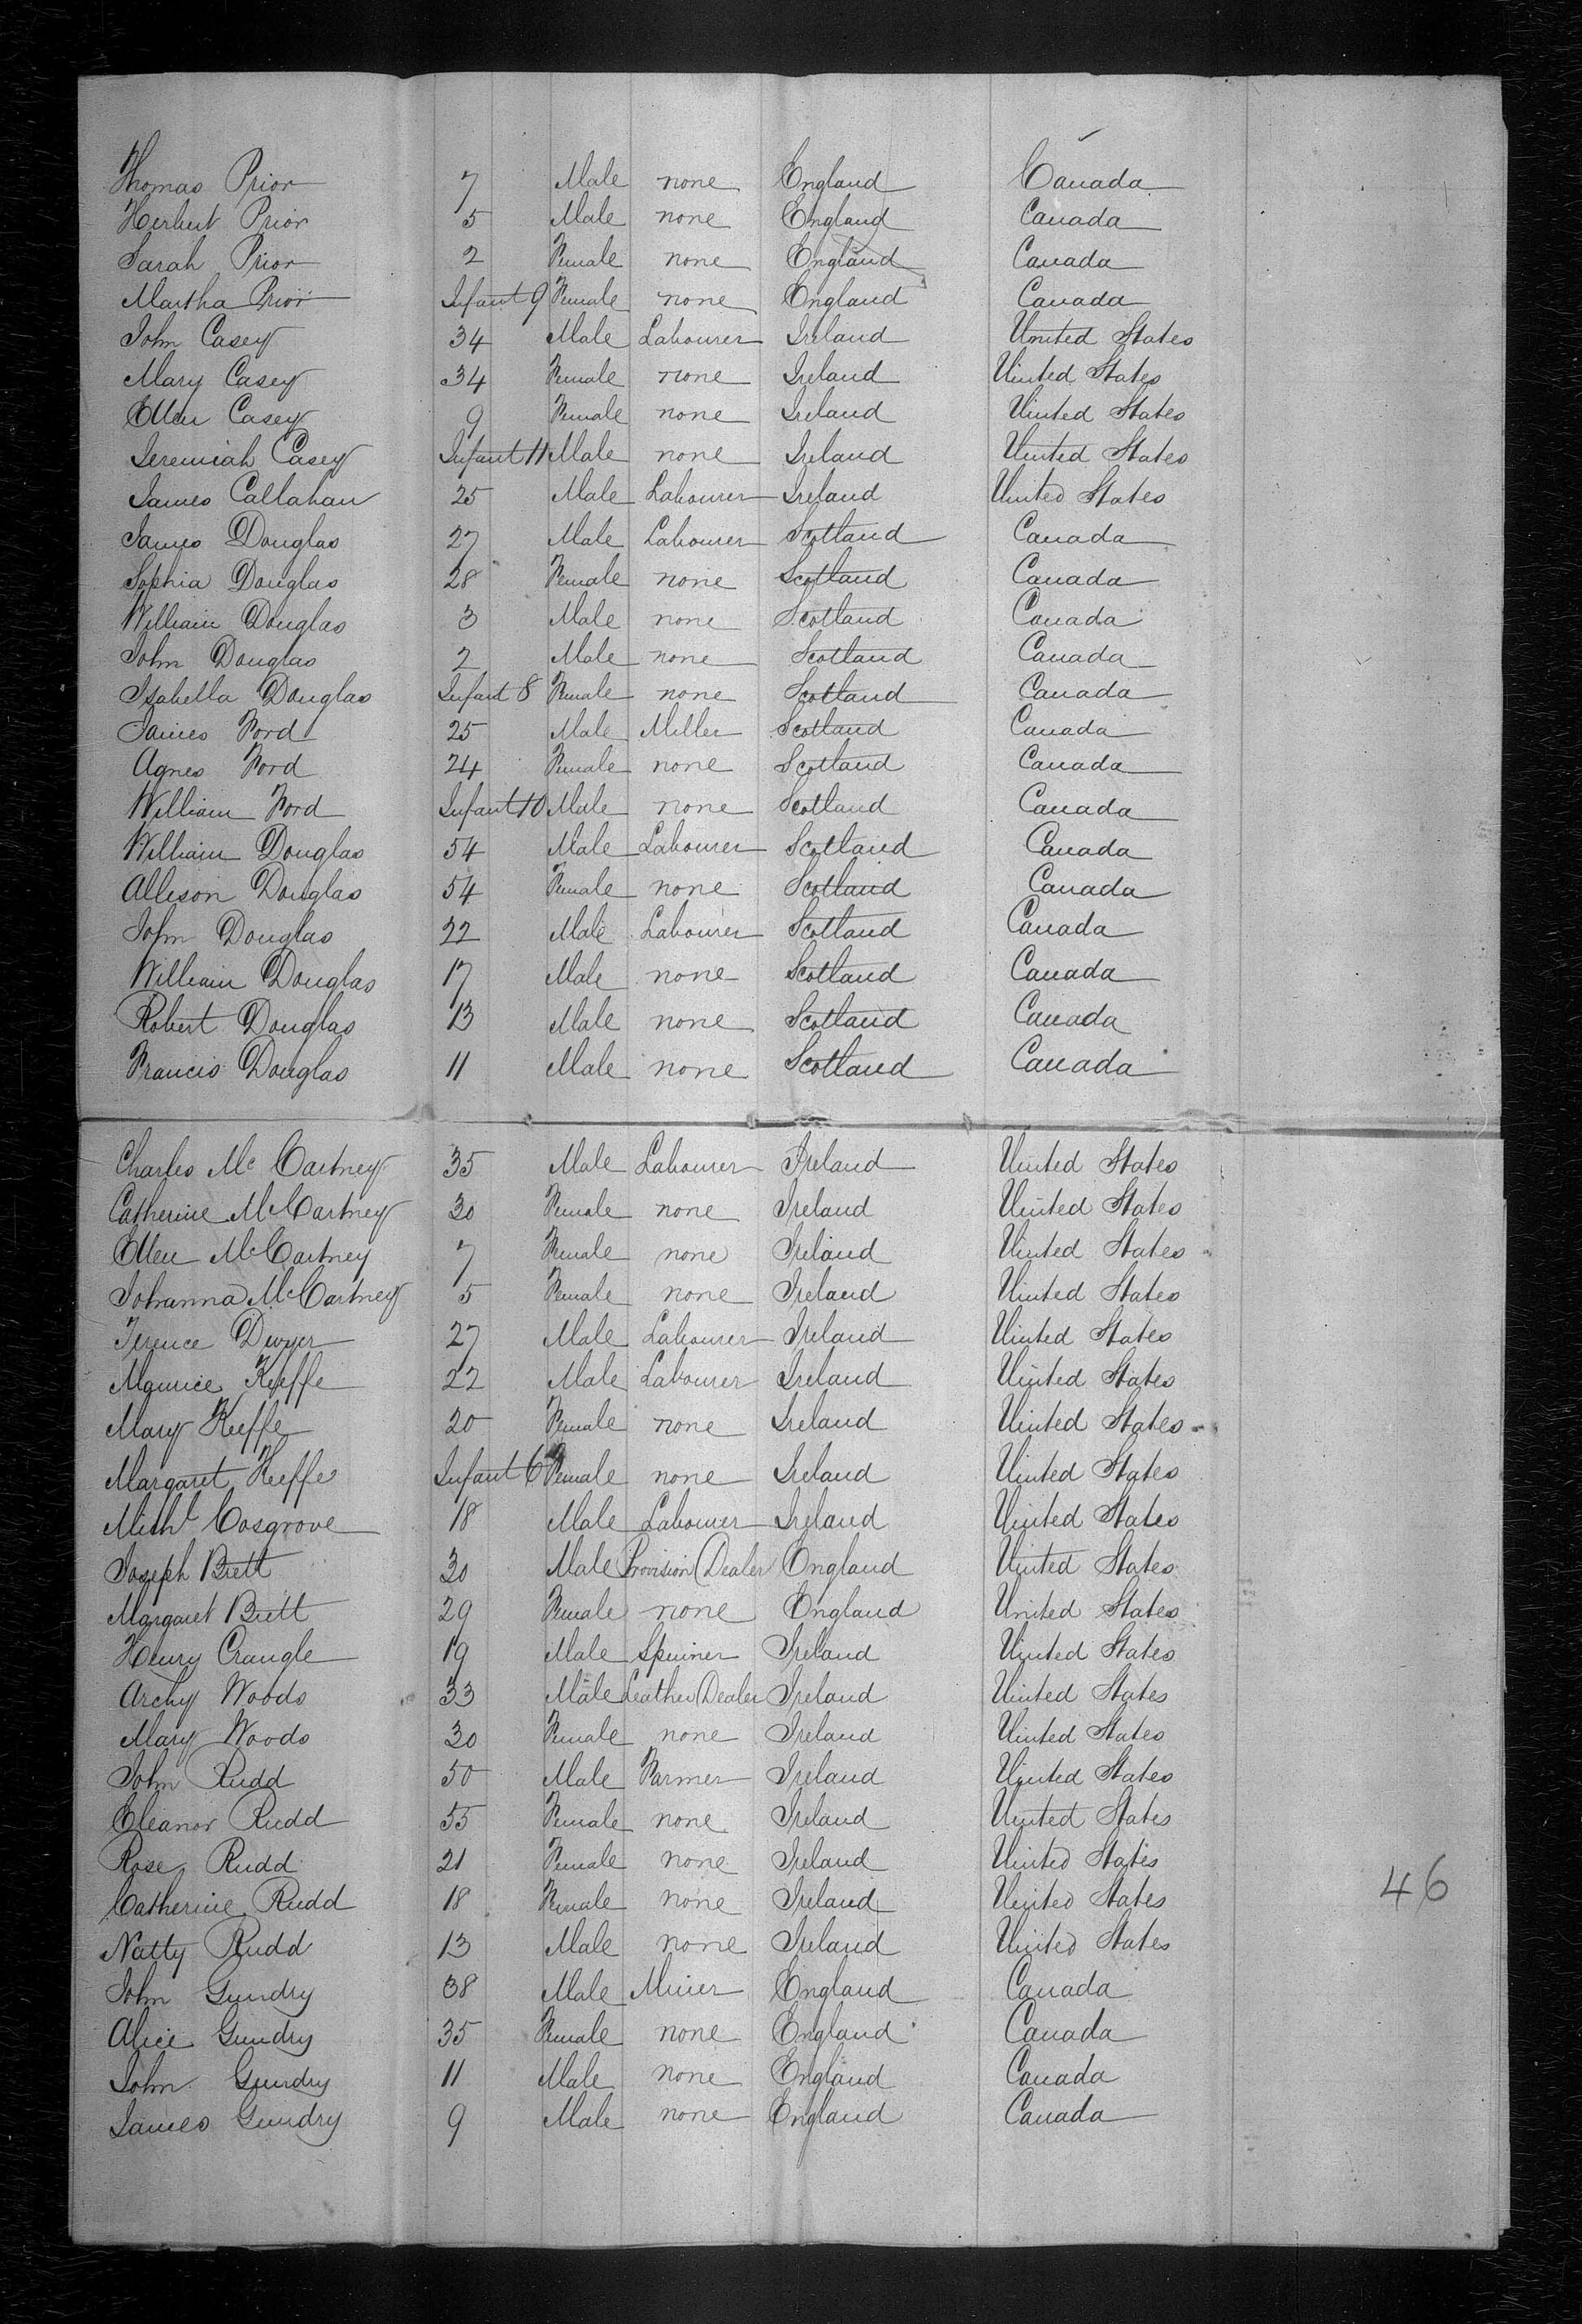 Thomas Prior 7 Male none England Canada
Herbert Prior 5 Male none England Canada
Sarah Prior 2 Female none England Canada
Martha Prior Infant 9 Female none England Canada
John Casey 34 Male Labourer Ireland United States
Mary Casey 34 Female none Ireland United States
Ellen Casey 9 Female none Ireland United States
Jeremiah Casey Infant 11 Male none Ireland United States
James Callahan 25 Male Labourer Ireland United States
James Douglas 27 Male Labourer Scotland Canada
Sophia Douglas 28 Female none Scotland Canada
William Douglas 3 Male none Scotland Canada
John Douglas 2 Male none Scotland Canada
Isabella Douglas Infant 8 Female none Scotland Canada
James Ford 25 Male Miller Scotland Canada
Agnes Ford 24 Female none Scotland Canada
William Ford Infant 10 Male none Scotland Canada
William Douglas 54 Male Labourer Scotland Canada
Allison Douglas 54 Female none Scotland Canada
John Douglas 22 Male Labourer Scotland Canada
William Douglas 17 Male none Scotland Canada
Robert Douglas 13 Male none Scotland Canada
Francis Douglas 11 Male none Scotland Canada
Charles McCartney 35 Male Labourer Ireland United States
Catherine McCartney 30 Female none Ireland United States
Ellen McCartney 7 Female none Ireland United States
Johanna McCartney 5 Female none Ireland United States
Terence Dwyer 27 Male Labourer Ireland United States
Maurice Keeffe 22 Male Labourer Ireland United States
Mary Keeffe 20 Female none Ireland United States
Margaret Keeffe Infant 6 Female none Ireland United States
Michl Cosgrove 18 Male Labourer Ireland United States
Joseph Brett 30 Male Provision Dealer England United States
Margaret Brett 29 Female none England United States
Henry Crangle 19 Male Spinner Ireland United States
Archy Woods 33 Male Leather Dealer Ireland United States
Mary Woods 30 Female none Ireland United States
John Rudd 50 Male Farmer Ireland United States
Eleanor Rudd 55 Female none Ireland United States
Rose Rudd 21 Female none Ireland United States
Catherine Rudd 18 Female none Ireland United States
46
Natty Rudd 13 Male none Ireland United States
John Gundry 38 Male Miner England Canada
Alice Gundry 35 Female none England Canada
John Gundry 11 Male none England Canada
James Gundry 9 Male none England Canada